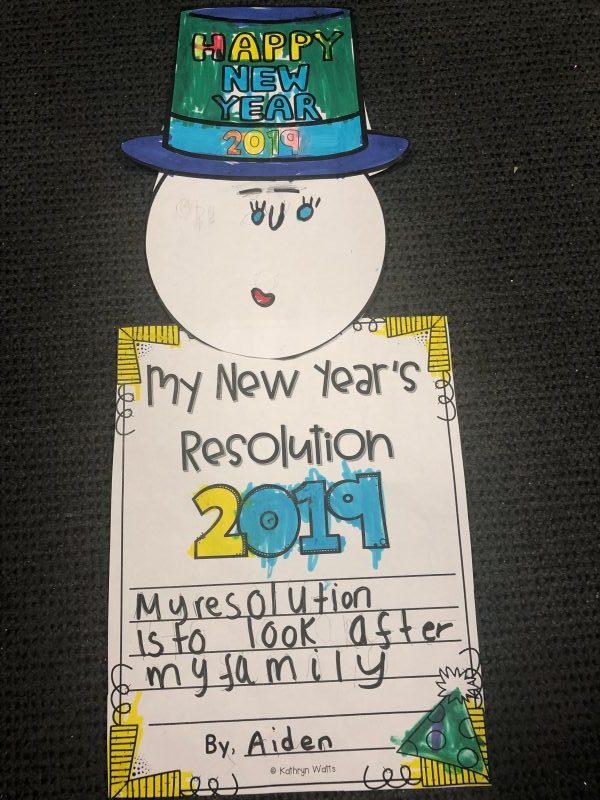 HAPPY
NEW
YEAR
2019
My New Year's
Resolution
2019
My resolution
is to look after
my family
By, Aiden
© Kathryn Watts